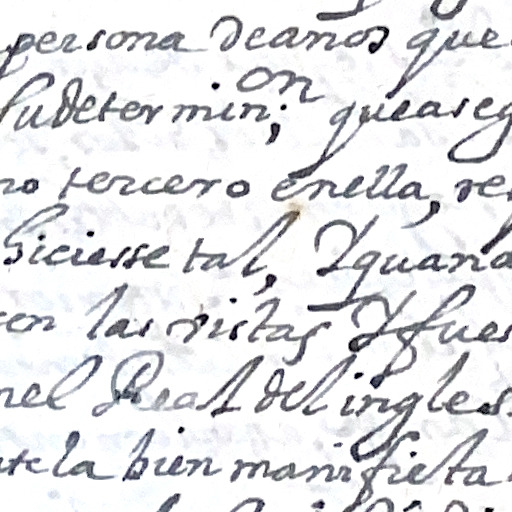 persona deanos que
Sudetermin,on queaseg
no tercero enella, re
hiciesse tal, Y quana
con las vistas Y fues
nel Real del ingles
tela bien manifiesta